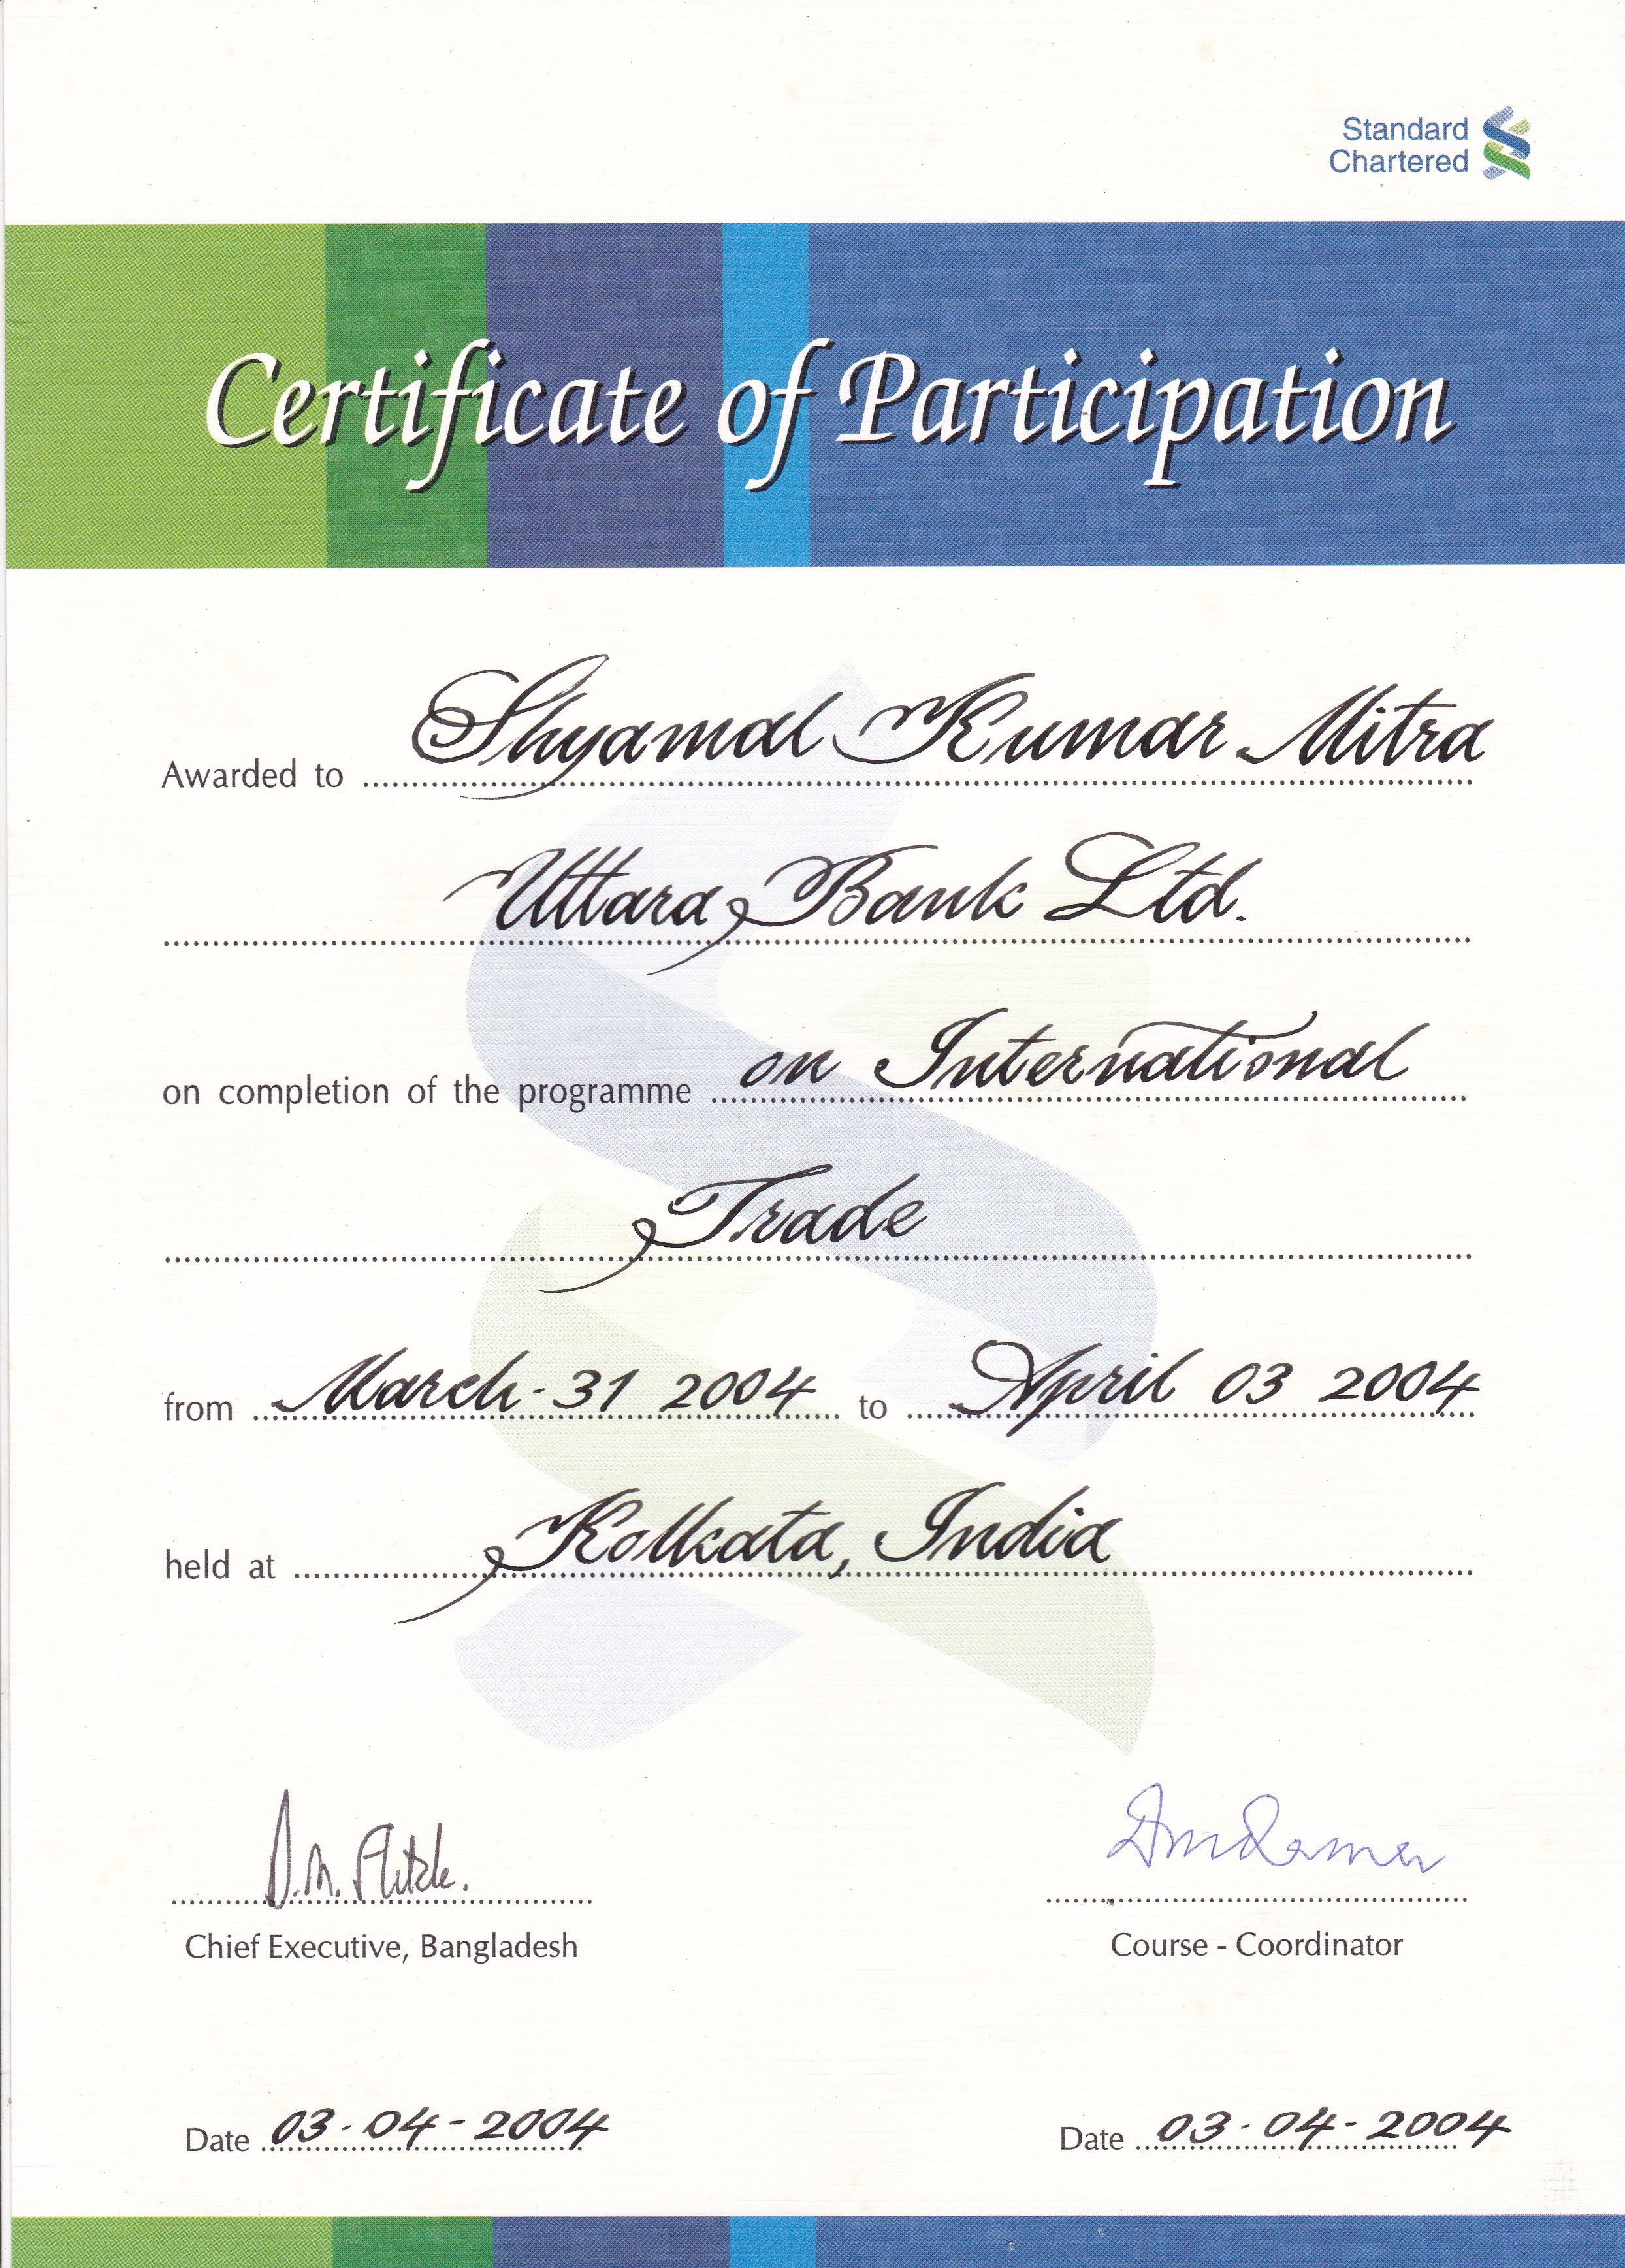 Standard
Chartered
Certificate of Participation
Awarded to Shyamal Kumar Mitra
Uttara Bank Ltd.
on completion of the programme on International
Trade
from March-31 2004 to April 03 2004
held at Kolkata, India
Chief Executive, Bangladesh
Course - Coordinator
Date 03-04-2004
Date 03-04-2004